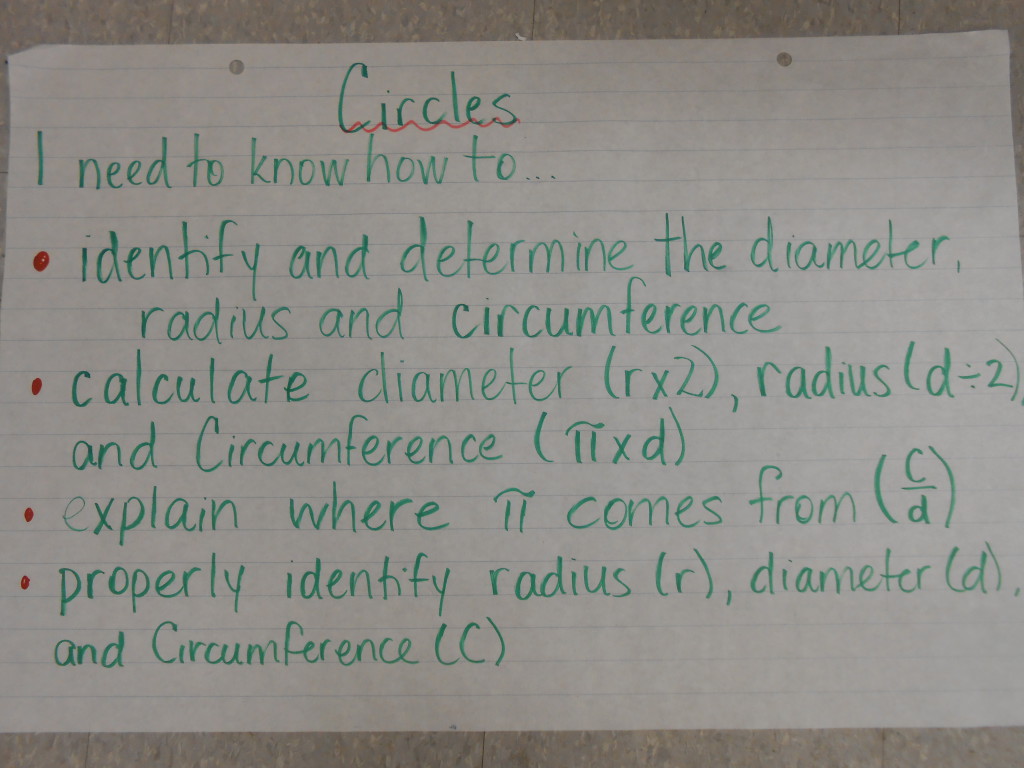 Circles
I need to know how to...
• identify and determine the diameter,
radius and circumference
• calculate diameter (rx2), radius (d÷2),
and Circumference (πxd)
• explain where π comes from (C/d)
• properly identify radius (r), diameter (d),
and Circumference (C)